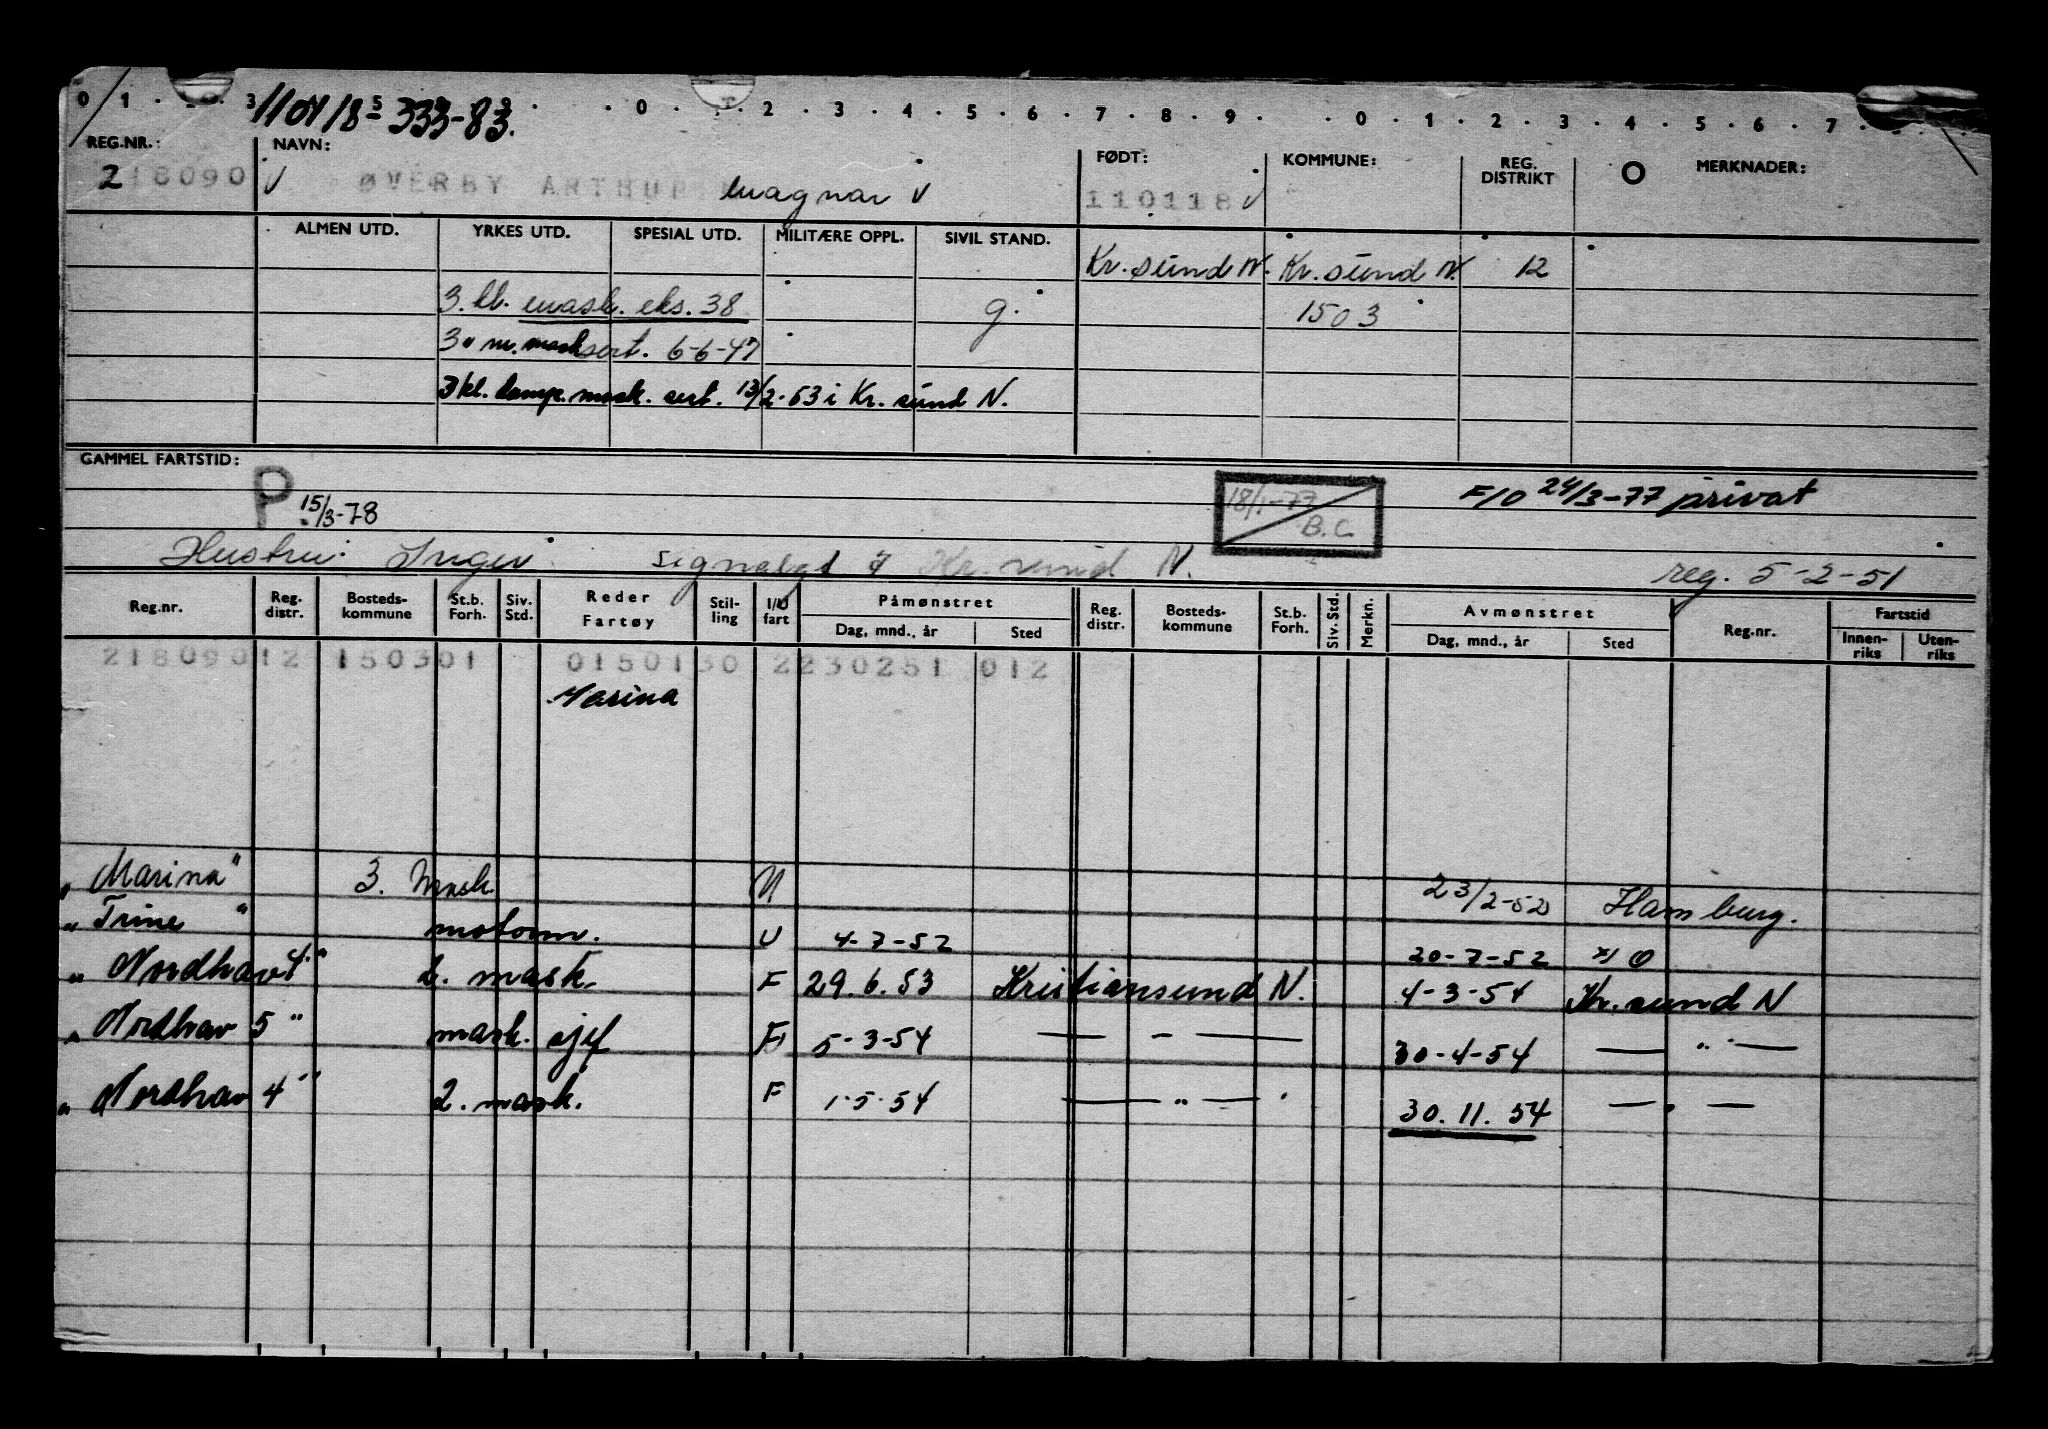 0 1 . 3 5 . . 0 . . 2 . 3 . 4 . 5 . 6 . 7 . 8 . 9 . . 0 . 1 . 2 . 3 . 4 . 5 . 6 . 7
110118 333-83.
REG.NR.: NAVN: FØDT: KOMMUNE: REG. DISTRIKT O MERKNADER:
218090 ØVERBY ARTHUR Magnar 110118
ALMEN UTD. YRKES UTD. SPESIAL UTD. MILITÆRE OPPL. SIVIL STAND.
Kr.sund N. Kr.sund N. 12
3. kl. mask. eks. 38 g. 1503
3. m. mask sert. 6-6-47
3 kl. damp. mask. sert. 13/2-53 i Kr. sund N.
GAMMEL FARTSTID:
P 15/3-78 18/1-77 B.C. F/O 24/3-77 privat
Hustru: Inger signalgt 7 Kr. sund N. reg. 5-2-51
Reg.nr. Reg. distr. Bosteds-kommune St.b. Forh. Siv. Std. Reder Fartøy Stil-ling I/U fart Påmønstret Dag, mnd., år Sted Reg. distr. Bosteds-kommune St.b. Forh. Siv. Std. Merkn. Avmønstret Dag, mnd., år Sted Reg.nr. Fartstid Innen-riks Uten-riks
218090 12 150301 0150130 2230251 012
Marina
„ Marina" 3. Mask. U 23/2-52 Hamburg.
„ Trine " motorm. U 4-7-52 20-7-52 O
„ Nordhav 4" 2. mask. F 29.6.53 Kristiansund N. 4-3-54 Kr. sund N
„ Nordhav 5" mask. sjef F 5-3-54 — - — 30-4-54 — " —
„ Nordhav 4" 2. mask. F 1-5-54 — " — 30.11.54 — " —